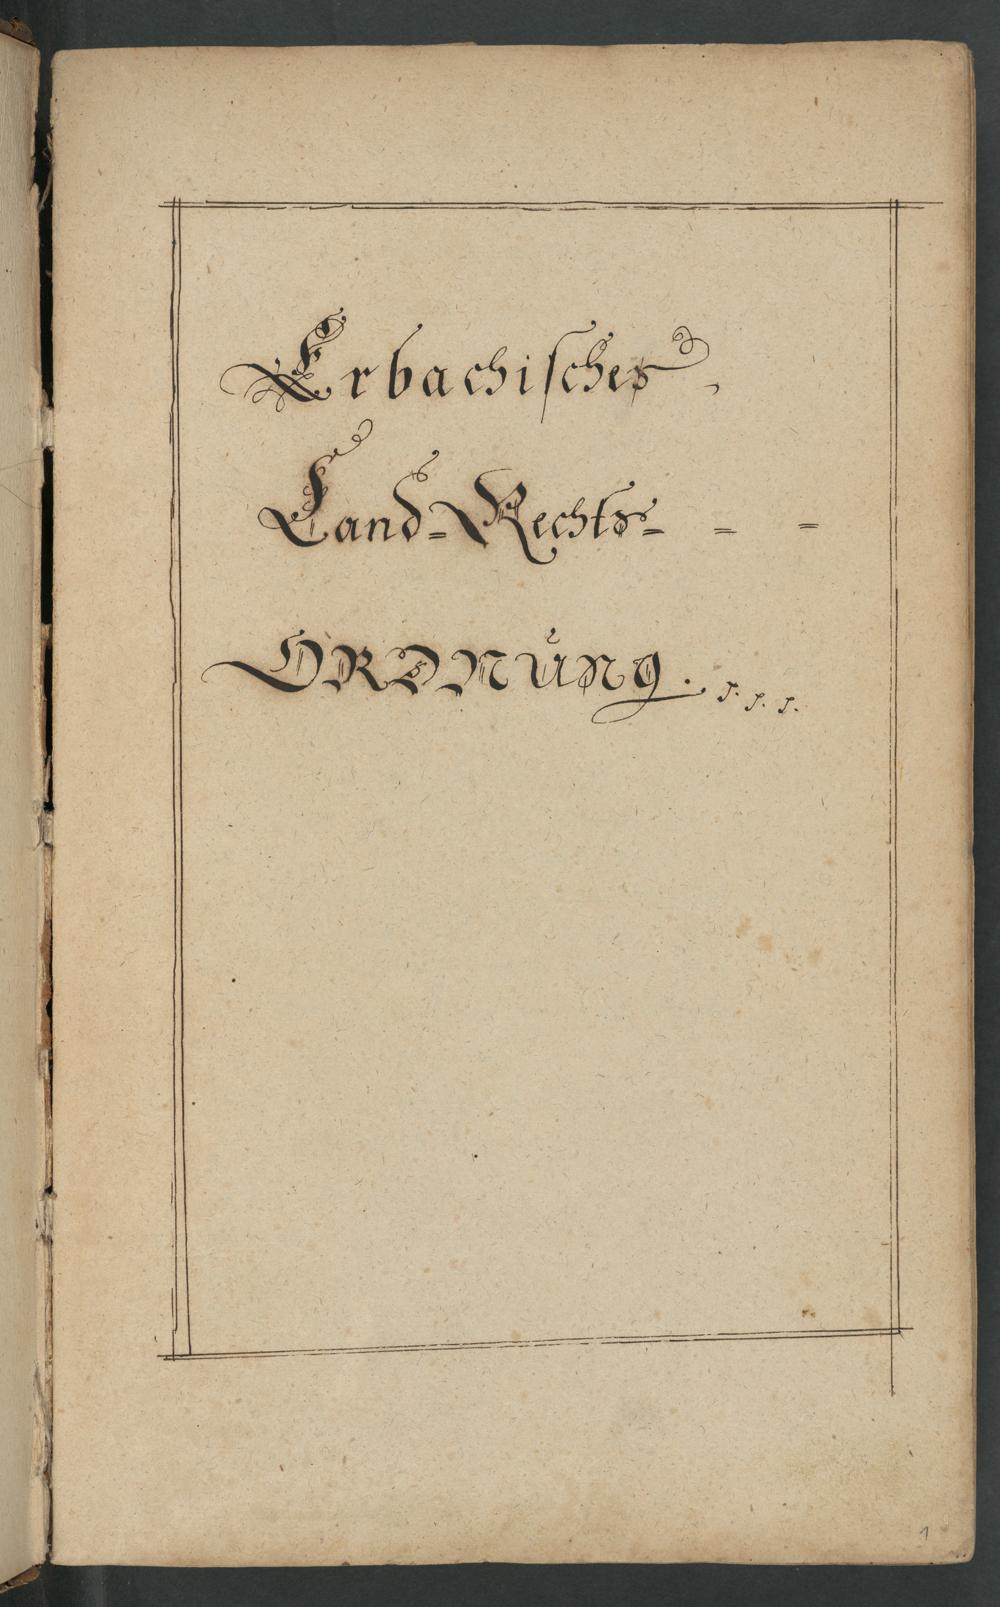 Erbachisches
Land=Rechts= = =
ORDNUNG. s. s. s.
1